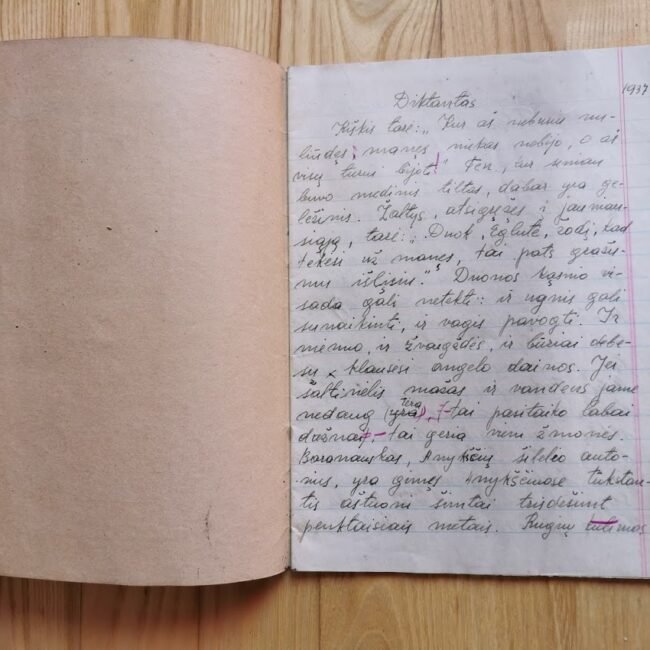 1937
Diktantas
Kiškis tarė: „Kur aš nebuvau nu-
liūdęs; manęs niekas nebijo, o aš
visų turiu bijoti!" Ten, kur seniau
buvo medinis tiltas, dabar yra ge-
ležinis. Žaltys, atsigręžęs į jauniau-
siąją, tarė: „Duok, Eglute, žodį, kad
tekėsi už manęs, tai pats gražiu-
mu išlįsiu." Duonos kąsnio vi-
sada gali netekti: ir ugnis gali
sunaikinti, ir vagis pavogti. Ir
niemo, ir žvaigždės, ir būriai debe-
sų klausėsi angelo dainos. Jei
šaltinėlis mažas ir vandens jame
nedaug (yra) tėra, tai pasitaiko labai
dažnai, – tai geria vieni žmonės.
Baranauskas, Anykščių šilelio auto-
rius, yra gimęs Anykščiuose tūkstan-
tis aštuoni šimtai trisdešimt
penktaisiais metais. Rugių